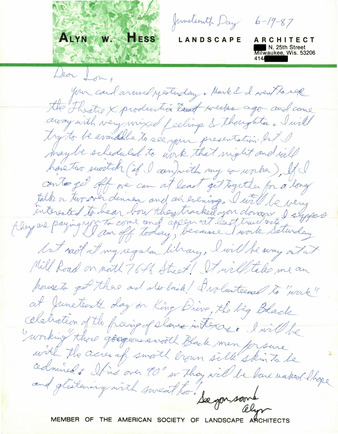 Juneteenth Day 6-19-87
ALYN W. HESS
LANDSCAPE ARCHITECT
N. 25th Street
Milwaukee, Wis. 53206
414
Dear Lou,
Your card arrived yesterday. Mark & I went to see
the Theatre X production two weeks ago and came
away with very mixed feelings & thoughts. I will
try to be available to see your presentation but I
maybe scheduled to work that night and will
have to switch (if I can) with my co-worker. If I
cannot get off we can at least get together for a long
talk over dinner and an evening. I will be very
interested to hear how they tracked you down. I suppose
they are paying you to come and
I am off today, because I work Saturday
but not at my regular library, I will be way out at
Mill Road on north 76th Street! It will take me an
hour to get there and also back! I volunteered to "work"
at Juneteenth day on King Drive, the big Black
celebration of the freeing of slaves in Texas. I will be
"working" those gorgeous smooth Black men for sure
with the acres of smooth brown silk skin to be
admired. It is over 90° so they will be bare naked I hope
and glistening with sweat too.
See you soon
Alyn
MEMBER OF THE AMERICAN SOCIETY OF LANDSCAPE ARCHITECTS